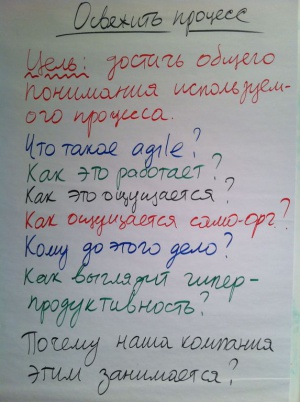 Освежить процесс
Цель: достичь общего
понимания используем-
ого процесса.
Что такое agile?
Как это работает?
Как это ощущается?
Как ощущается само-орг?
Кому до этого дело?
Как выглядит гипер-
продуктивность?
Почему наша компания
этим занимается?